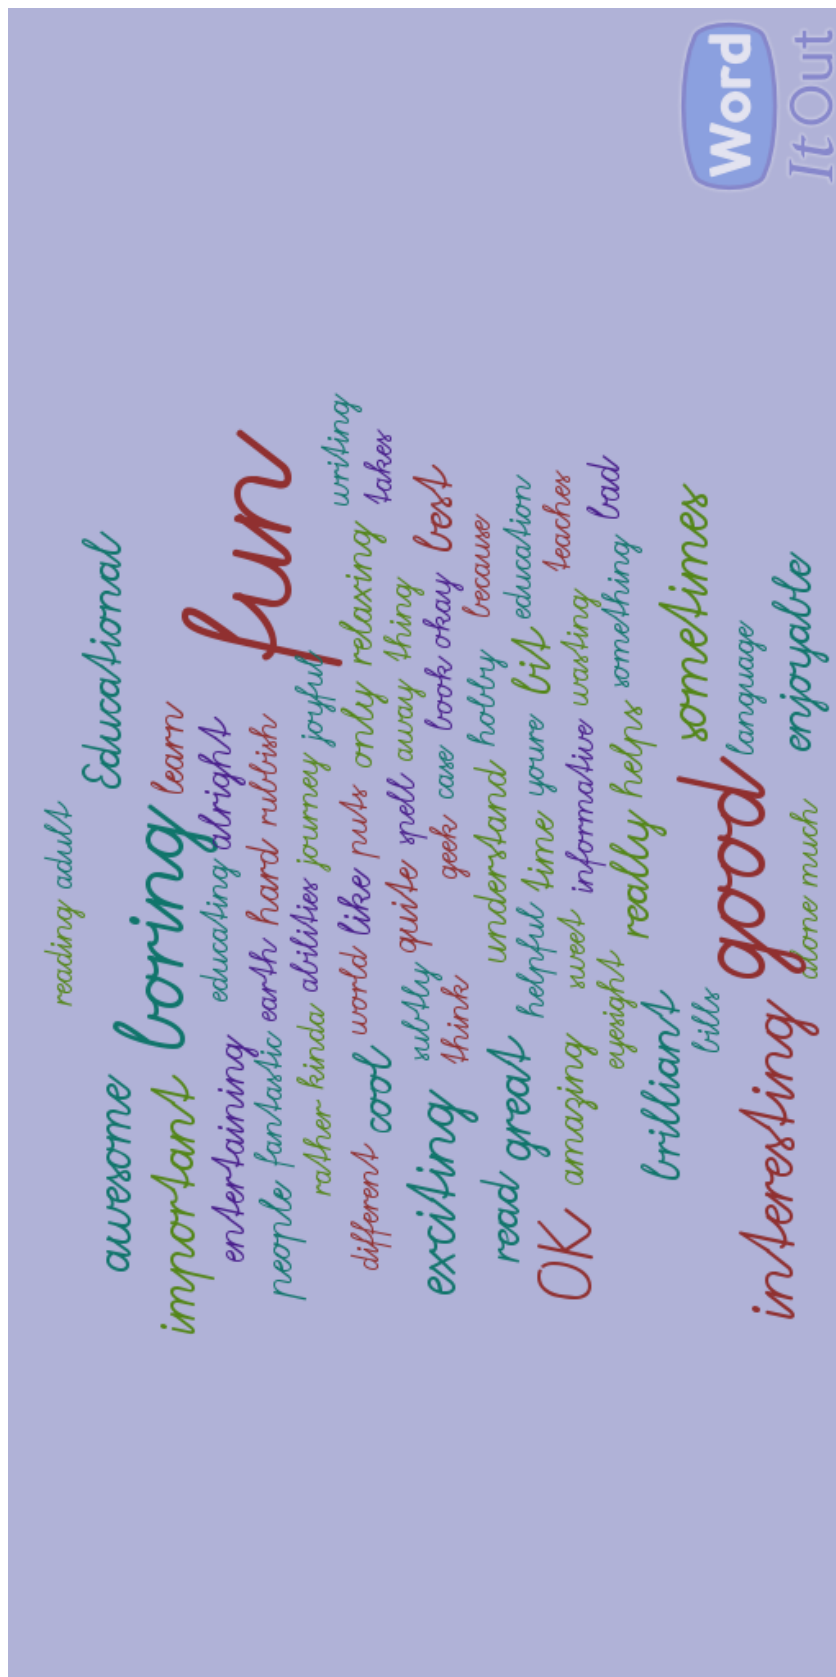 reading adult
awesome Educational
important boring learn
entertaining educating alright
people fantastic earth hard rubbish fun
rather kinda abilities journey joyful
different cool world like puts only relaxing writing
exciting subtly quite spell away thing takes
think geek case book okay best
read great understand hobby because
OK helpful time youre bit education
amazing sweet informative wasting teaches
eyesight really helps something bad
brilliant bills good sometimes
interesting language
alone much enjoyable
Word
It Out